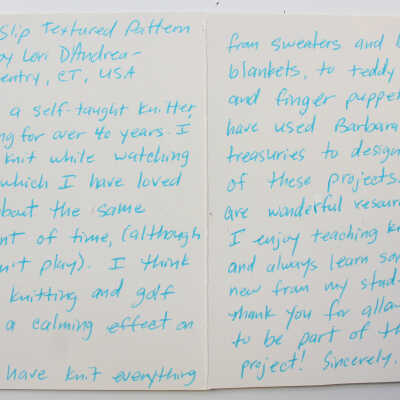 Slip Textured Pattern
by Lori D'Andrea-
entry, CT, USA
a self-taught knitter,
ng for over 40 years. I
knit while watching
which I have loved
bout the same
nt of time, (although
n't play). I think
knitting and golf
a calming effect on
have knit everything
from sweaters and
blankets, to teddy
and finger puppe
have used Barbara
treasuries to design
of these projects.
are wonderful resour
I enjoy teaching kn
and always learn som
new from my stud
Thank you for allow
to be part of th
project! Sincerely,